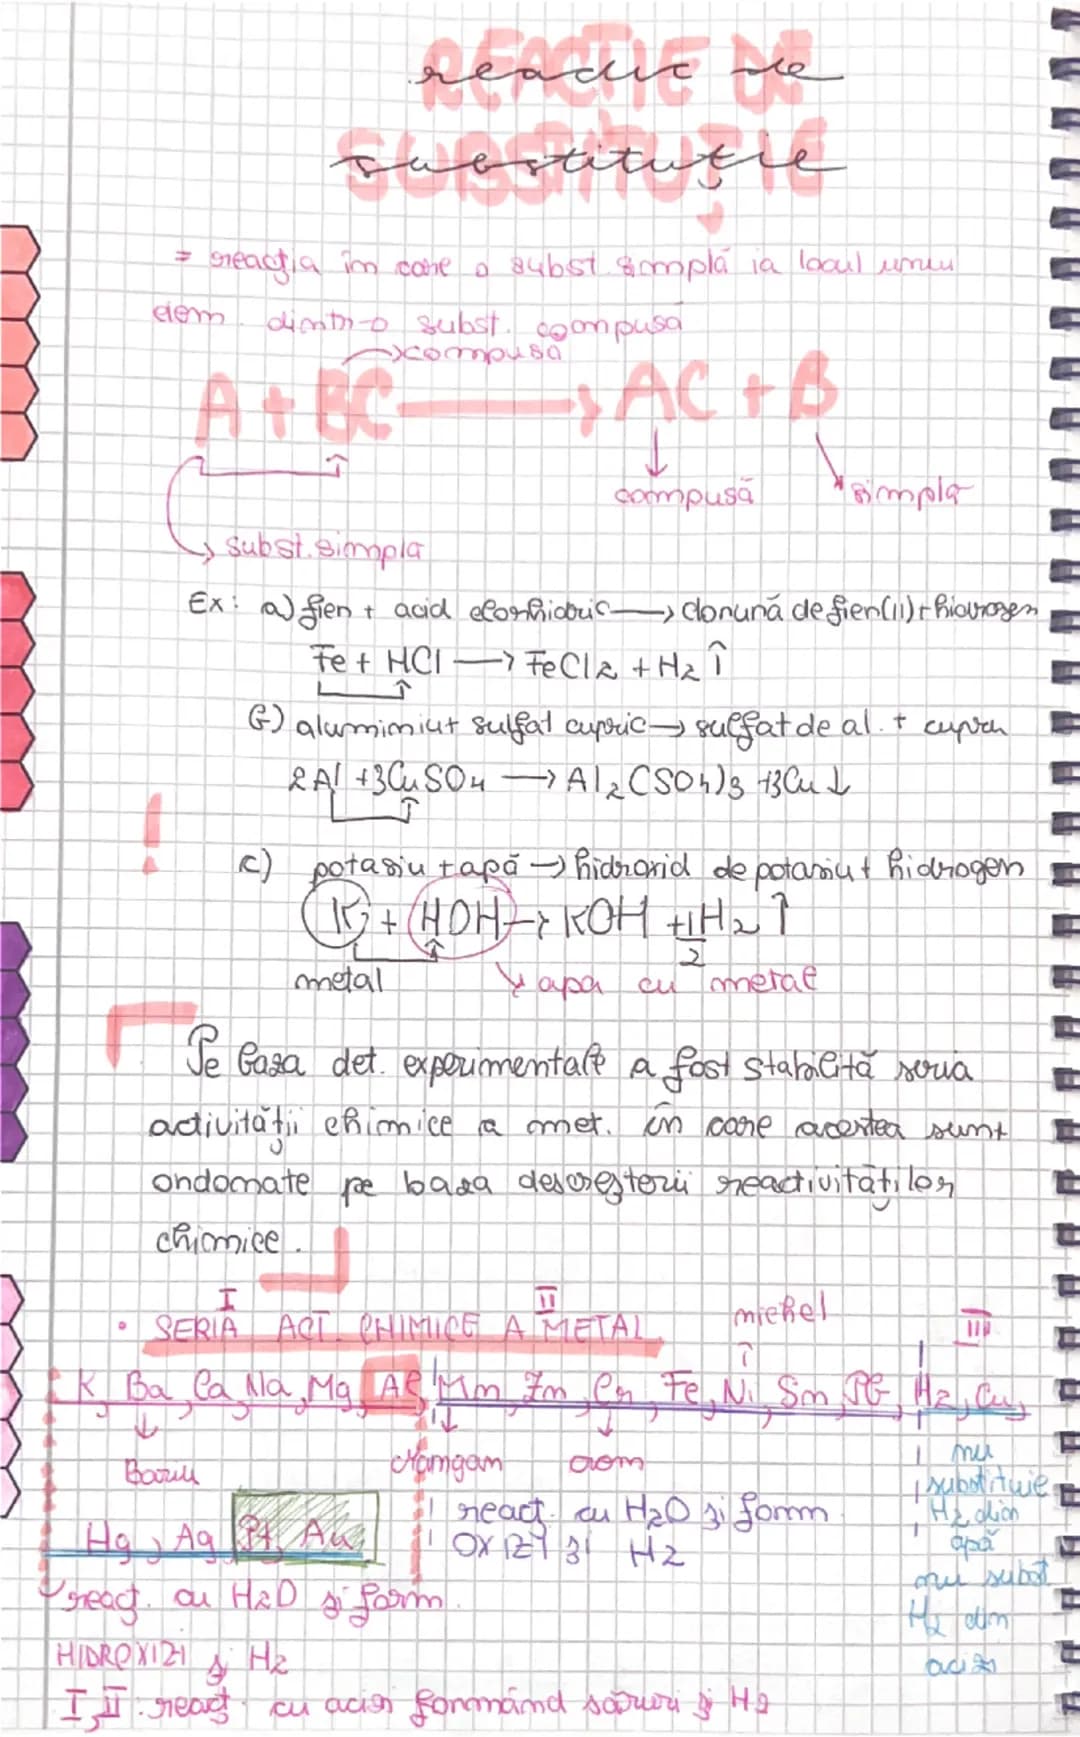 REACTIE DE
reactie de
SUBSTITUȚIE
substituție
= reacția în care o subst. simplă ia locul unui
elem. dintr-o subst. compusă
compusă
A + BC → AC + B
compusă simplă
subst. simplă
Ex: a) fier + acid clorhidric → clorură de fier(II) + hidrogen
Fe + HCl → FeCl2 + H2 ↑
b) aluminiu + sulfat cupric → sulfat de al. + cupru
2Al + 3CuSO4 → Al2(SO4)3 + 3Cu ↓
!
c) potasiu + apă → hidroxid de potasiu + hidrogen
K + HOH → KOH + 1/2 H2 ↑
metal apa cu metal
Pe baza det. experimentale a fost stabilită seria
activității chimice a met. în care acestea sunt
ordonate pe baza descreșterii reactivităților
chimice.
I II michel III
• SERIA ACT. CHIMICE A METAL
K, Ba, Ca, Na, Mg, Al, Mn, Zn, Cr, Fe, Ni, Sn, Pb, H2, Cu,
Bariu Mangan crom
Hg, Ag, Pt, Au
react. cu H2O și form.
OXIZI și H2
nu
substituie
H2 din
apă
nu subst.
H2 din
acizi
react. cu H2O și form.
HIDROXIZI și H2
I, II: react. cu acizi formând săruri și H2